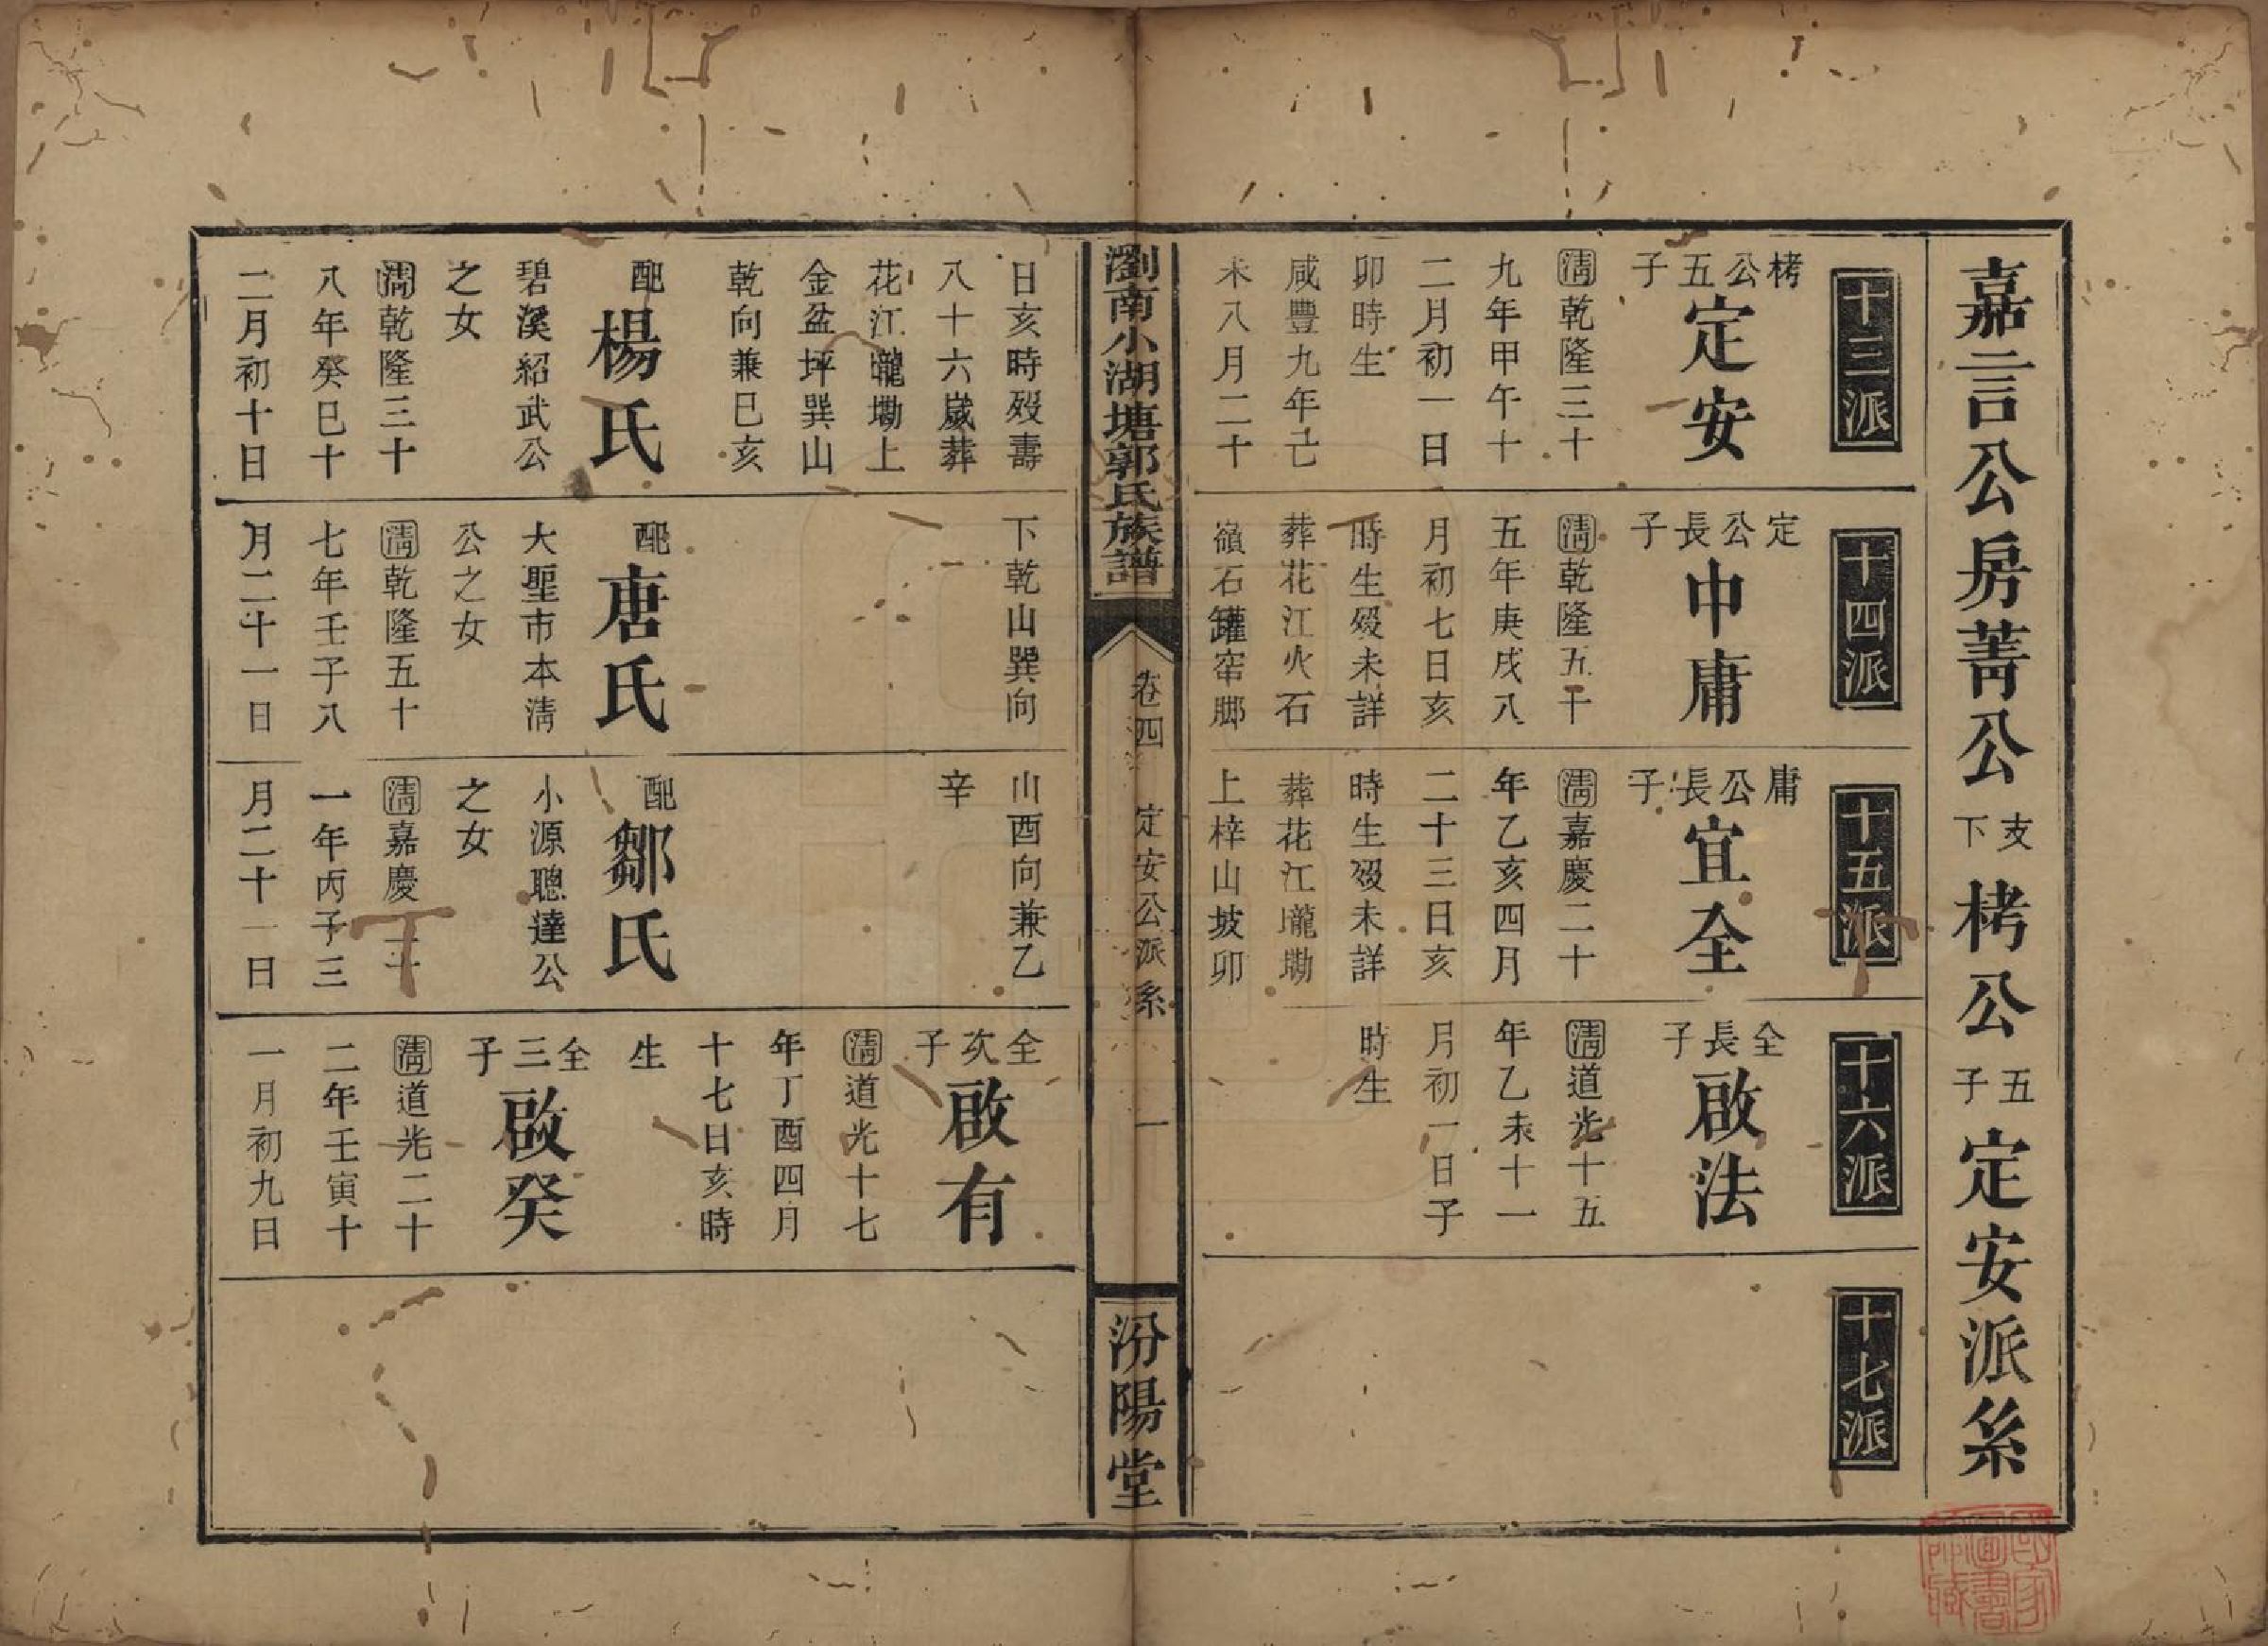 嘉言公房菁公支下栲公五子定安派系
十三派
栲公五子
定安
淸乾隆三十
九年甲午十
二月初一日
卯時生
咸豐九年己
未八月二十
十四派
定公長子
中庸
淸乾隆五十
五年庚戌八
月初七日亥
時生歿未詳
葬花江火石
嶺石罐窑腳
十五派
庸公長子
宜全
淸嘉慶二十
年乙亥四月
二十三日亥
時生歿未詳
葬花江壠塅
上梓山坡卯
十六派
全長子
啟法
淸道光十五
年乙未十一
月初一日子
時生
十七派
瀏南小湖塘郭氏族譜
卷四
定安公派系
一
汾陽堂
日亥時歿壽
八十六歲葬
花江壠塅上
金盆坪巽山
乾向兼巳亥
配楊氏
碧溪紹武公
之女
淸乾隆三十
八年癸巳十
二月初十日
下乾山巽向
配唐氏
大聖市本淸
公之女
淸乾隆五十
七年壬子八
月二十一日
山酉向兼乙
辛
配鄒氏
小源聰達公
之女
淸嘉慶二十
一年丙子三
月二十一日
全次子
啟有
淸道光十七
年丁酉四月
十七日亥時
生
全三子
啟癸
淸道光二十
二年壬寅十
一月初九日
國家圖書館藏